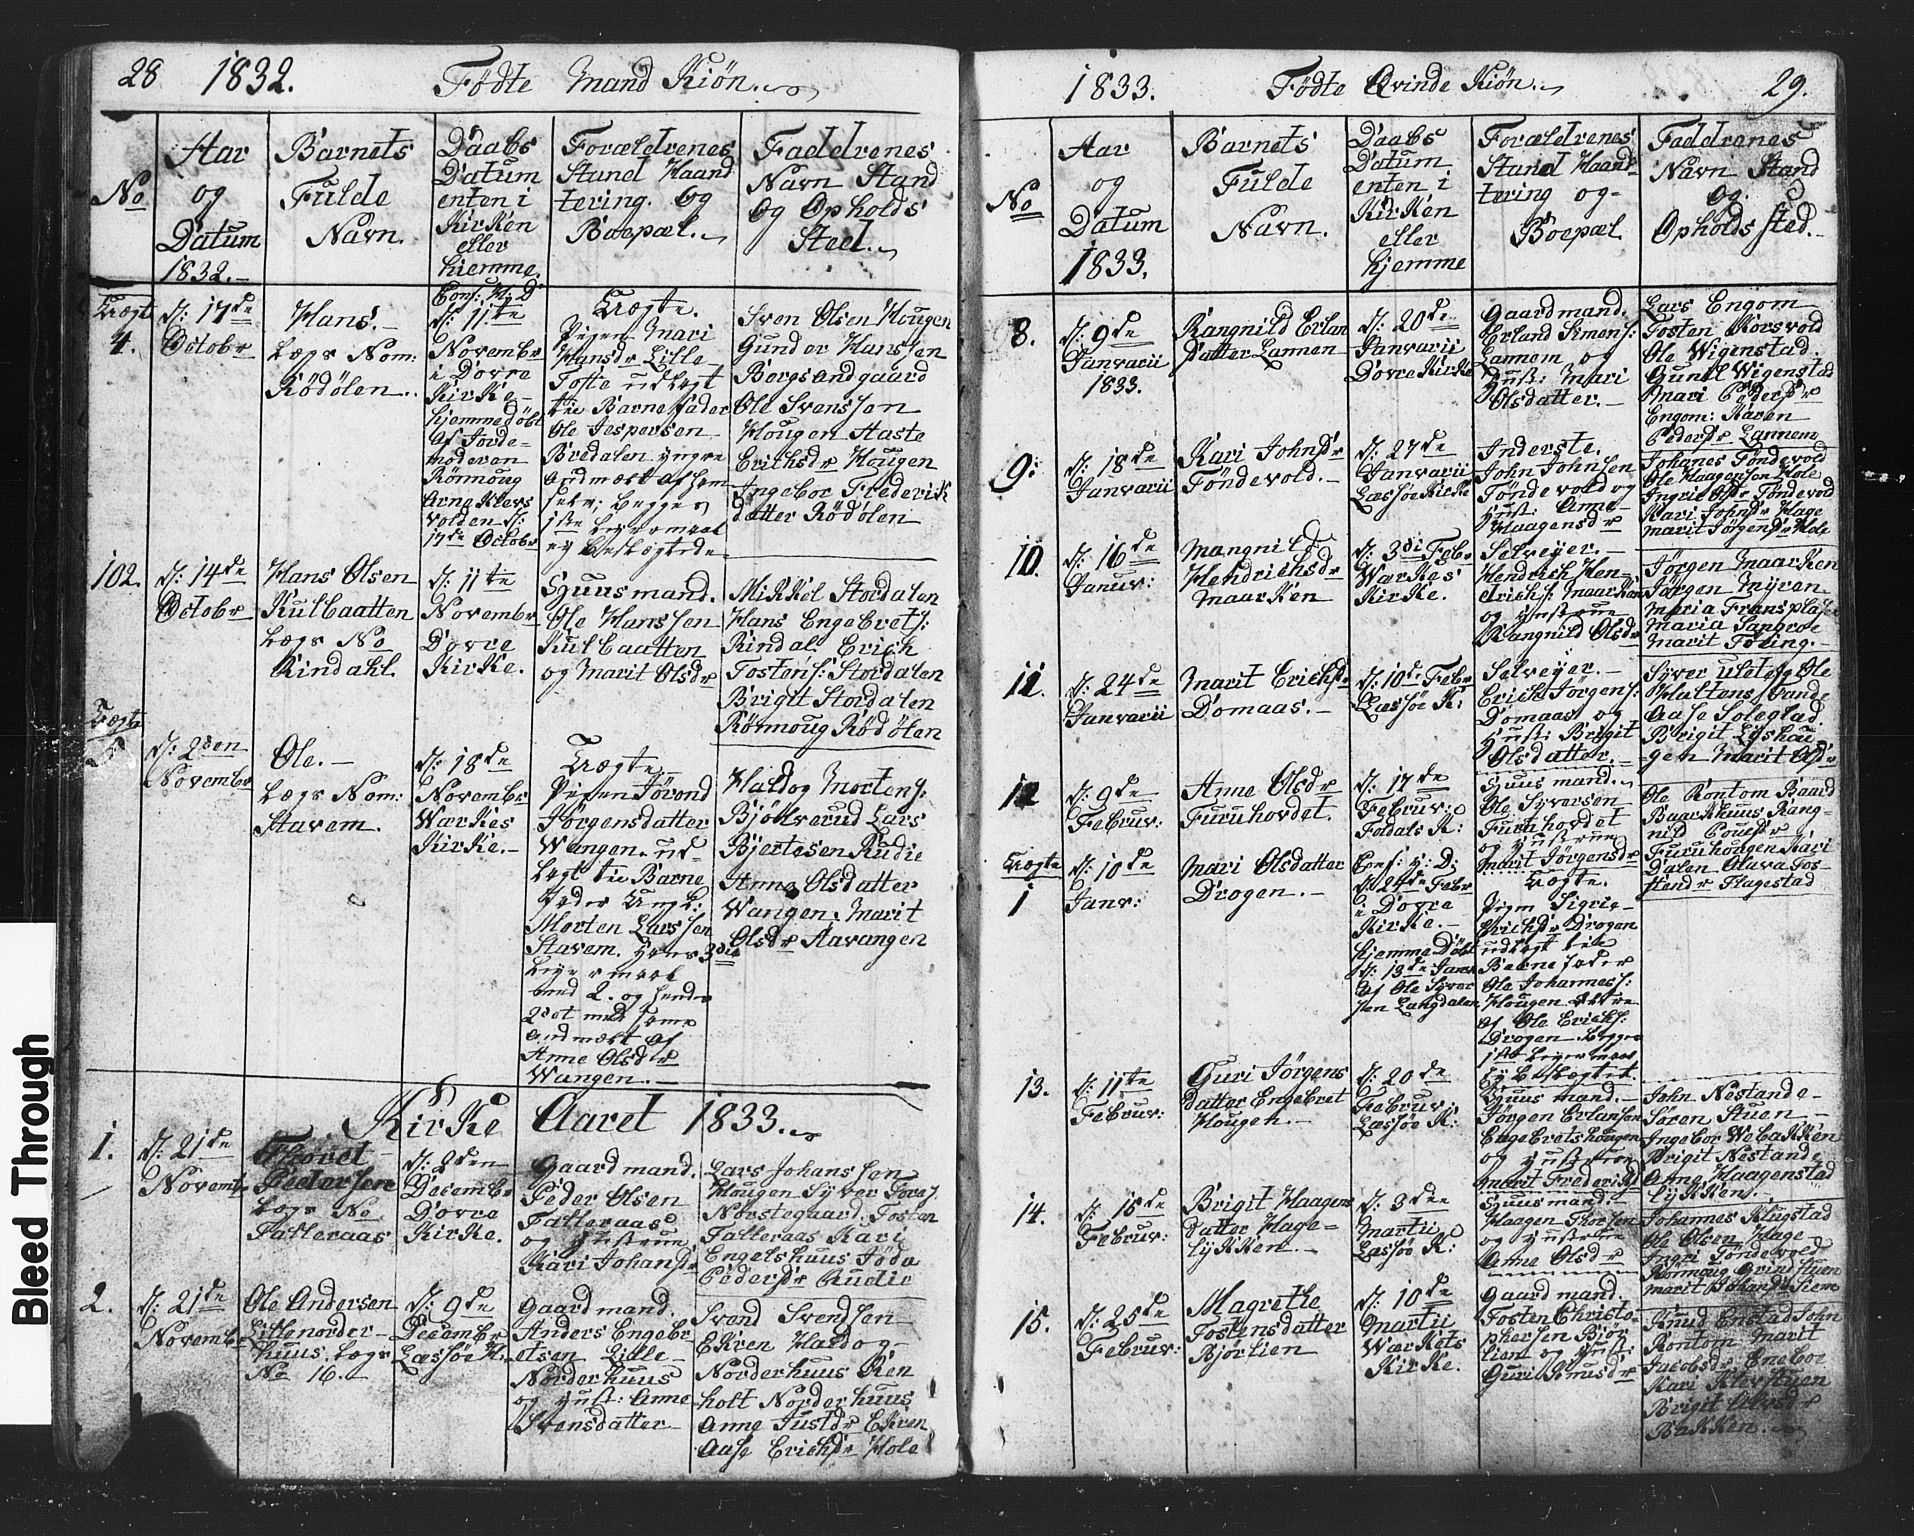 28 1832. Fødte Mand Kiøn.
No
Aar
og
Datum
1832.
Barnets
Fulde
Navn.
Daabs
Datum
enten i
Kirken
eller
hiemme.
Forældrenes
Stand Haand
tering. og
Boepæl.
Faddrenes
Navn Stand
og Opholds
Sted.
Uægte
4.
d: 17de
Octobr
Hans.
Lægs Nom:
Rödölen.
Conf: H: D
d: 11te
Novembr
i Dovre
Kirke
hjemmedöbt
af Jorde-
moderen
Rönnoug
Arne Klevs
volden d:
17de Octobr
Uægte.
Pigen Mari
Hansdr Lille
Tofte udlagt
til Barnefader
Ole Jespersen
Bredalen yngre
andmældt af ham
selv; begges
1ste Leiermaal
ej beslægtede
Sven Olsen Hougen
Gunder Hanssen
Borgsandgaard
Ole Svenssen
Hougen Aaste
Erichsdr Hougen
Ingebor Frederik
datter Rödölen
102.
d: 14de
Octobr
Hans Olsen
Kulbaatten
Lægs No
Rindahl.
d: 11te
Novembr
Dovre
Kirke.
Huusmand.
Ole Hanssen
Kulbaatten
og Marit Olsdr
Mikkel Stordalen
Hans Engebrets:
Rindal Erich
Tostens: Stordalen
Brigit Stordalen
Rönnoug Rödölen
Uægte
5
d: 2den
Novembr
Ole.
Lægs Nom:
Stavem.
d: 18de
Novembr
Warkes
Kirke.
Uægte
Pigen Jörond
Jörgensdatter
Wangen. ud-
lagt til Barne
Fader Ungk:
Morten Larssen
Stavem. Hans 3die
Leiermaal
med 2. og hendes
2det med samme
andmældt af
Anne Olsdr
Wangen.
Haldog Mortens:
Bjölverud Lars
Bjertesen Rudie
Anne Olsdatter
Wangen. Marit
Olsdr Aavangen
Kirke Aaret 1833.
1.
d: 21de
Novembr
Thorel
Pedersen
Lægs No
Falleraas
d: 2den
Decembr
Dovre
Kirke.
Gaardmand.
Peder Olsen
Falleraas
og Hustrue
Kari Johansdr
Lars Johanssen
Hougen Syver Tores:
Norstegaard. Tosten
Falleraas Kari
Engelshuus Jöda
Pedersdr Rudie
2.
d: 21de
Novembr
Ole Andersen
Lillenorder-
huus. Lægs
No 16.
d: 9de
Decembr
Læssöe K:
Gaardmand.
Anders Engebr
etsen Lille-
Norderhuus
og Hust: Anne
Svensdatter
Svend Svendsen
Ekren Haldog
Norderhuus Ren
holt Norderhuus
Anne Justdr Ekren
Aase Erichsdr Hole
1833. Fødte Qvinde Kiøn. 29.
No
Aar
og
Datum
1833.
Barnets
Fulde
Navn.
Daabs
Datum
enten i
Kirken
eller
hjemme
Forældrenes
Stand Haand-
tering og
Boepæl
Faddrenes
Navn Stand
og
Opholdssted.
8.
d: 9de
Janvarii
1833.
Rangnild Erlan
datter Lannem
d: 20de
Janvarii
Dovre Kirke
Gaardmand.
Erland Simens:
Lannem og
Hust: Mari
Olsdatter.
Lars Engom
Tosten Korsvold
Ole Wigenstad.
Gunil Wigenstad
Mari Pedersdr
Engom: Karen
Pedersdr Lannem
9:
d: 18de
Janvarii
Kari Johnsdr
Töndevold.
d: 27de
Janvarii
Læssöe Kirke
Inderste.
John Johnsen
Töndevold og
Hust: Anne
Haagensdr
Johanes Töndevold
Ole Haagensen Hole
Ingrie Olsdr Töndevold
Kari Johnsdr Hage
Marit Jörgensdr Hole
10.
d: 16de
Januv:
Mangnild
Hendrichsdr
Maarken
d: 3di Febr
Warkes
Kirke.
Selveyer.
Hendrich Hen-
drichs: Maarken
og Hustrue
Rangnild Olsdr
Jörgen Maarken
Jörgen Myren
Maria Fransplasse
Maria Sangroe
Marit Töring.
11.
d: 24de
Janvarii
Marit Erichsdr
Domaas.
d: 10de Febr
Læssöe K:
Selveyer.
Erich Jörgens:
Domaas og
Hust: Brigit
Olsdatter.
Syver Ulateg Ole
Hultens Sande
Aase Soleglad.
Brigit Lyshau
gen Marit Olsdr
12
d: 9de
Februv:
Anne Olsdr
Furuhovdet.
d: 17de
Februv:
Foldals K:
Huusmand.
Ole Syversen
Furuhovdet
og Hustrue
Marit Jörgensdr
Ole Rontom Baard
Baarkhuus Rang-
nild Povelsdr
Furuhougen Kari
Dalen Olava Tos-
stensdr Flagestad
Uægte
1
d: 10de
Janv:
Mari Olsdatter
Drogen.
Conf: H: D:
d: 24de Febr
i Dovre
Kirke.
Hjemme Döbt
d: 13de Janv
af Ole Syver
sen Langdalen
Uægte.
Pigen Sigrie
Erichsdr Drogen
udlagt til
Barnefader
Ole Johanness:
Hougen Eldre
af Ole Erichs:
Drogen. begges
1ste Leiermaal
Ej beslægtet.
13.
d: 11te
Februv:
Guri Jörgens
datter Engebret
Hougen.
d: 20de
Februv:
Læssöe K:
Huusmand.
Jörgen Erlansen
Engebretshougen
og Hustrue
Marit Frederiksd
John Nestande
Sören Stuen
Ingebor Webakken
Brigit Nestande
Anne Haagenstad
Lykken.
14.
d: 15de
Februv:
Brigit Haagens
datter Hage-
lykken.
d: 3die
Martii
Læssöe K:
Huusmand.
Haagen Thorsen
og Hustrue
Anne Olsdr
Johannes Klugstad
Ole Olsen Hage
Ingri Töndevold
Rönnoug Qvindstuen
Marit Johansdr Siem
15.
d: 25de
Februv:
Magrethe
Tostensdatter
Bjorlien
d: 10de
Martii
Warkets
Kirke.
Gaardmand.
Tosten Christo-
phersen Bjor
lien og Hust:
Guri Knusdr
Knud Enstad John
Rontom Marit
Jacobsdr Eneboe
Kari Klevstuen
Brigit Olvsdr
Bakken.
Bleed Through